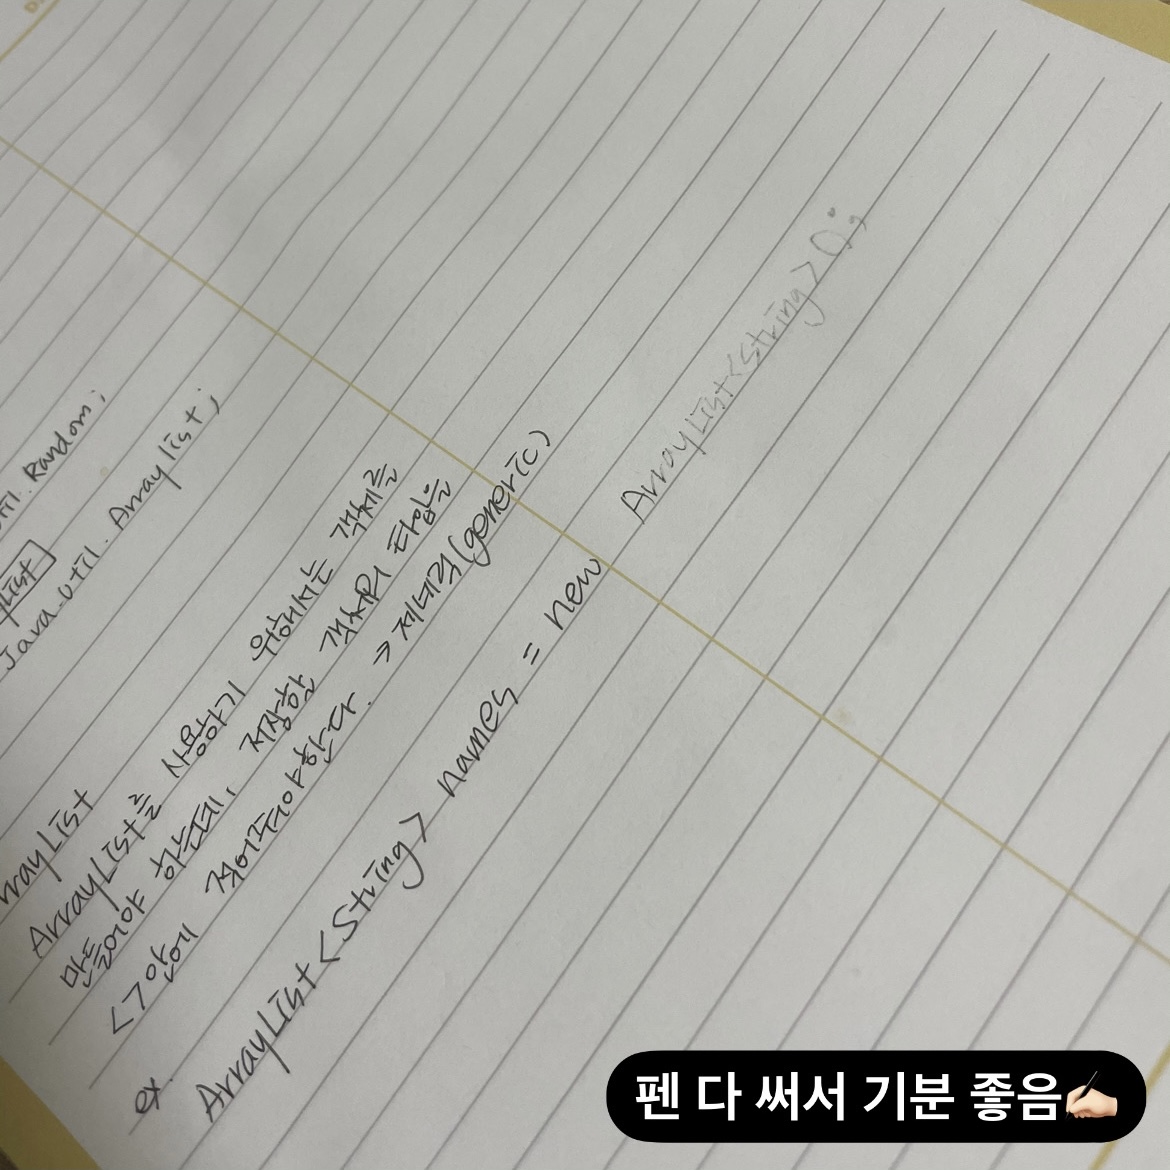 util. Random;
Java.util. Arraylist;
ArrayList
ArrayList를 사용하기 위해서는 객체를
만들어야 하는데, 저장할 객체의 타입을
<>안에 적어줘야한다. → 제네릭(generic)
ex.
ArrayList<String> names = new ArrayList<String>();
펜 다 써서 기분 좋음✍🏻